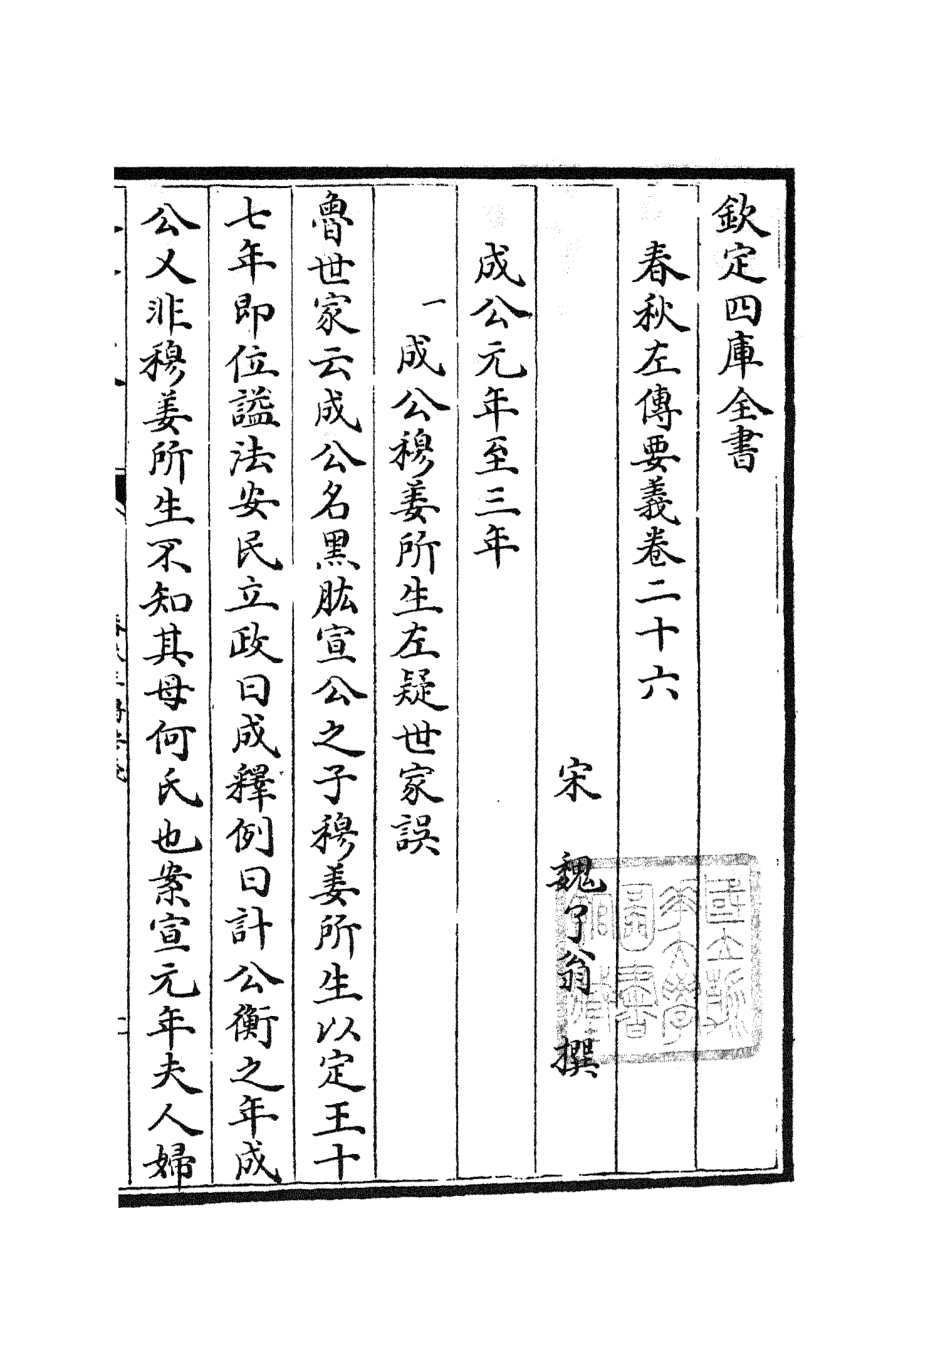 欽定四庫全書
春秋左傳要義卷二十六
宋 魏了翁 撰
成公元年至三年
一成公穆姜所生左疑世家誤
魯世家云成公名黑肱宣公之子穆姜所生以定王十
七年即位謚法安民立政曰成釋例曰計公衡之年成
公又非穆姜所生不知其母何氏也案宣元年夫人婦